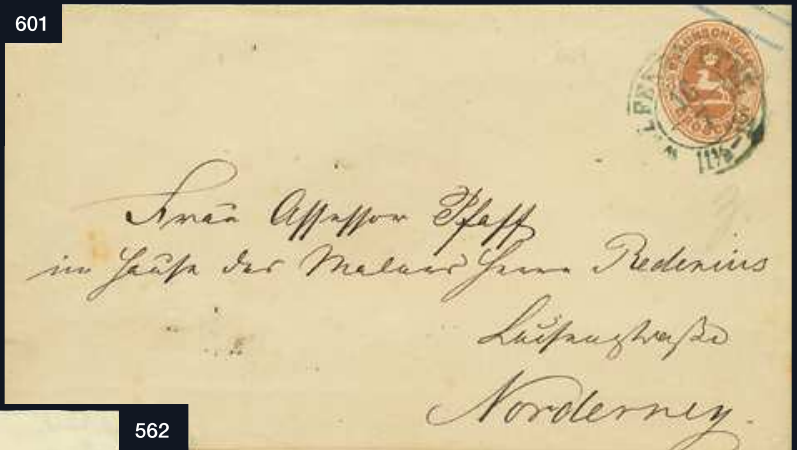 601
BRAUNSCHWEIG
GROSCHEN
11½
Frau Assessor Pfaff
im Hause des Malers Herrn Rederius
Luisenstraße
Norderney.
562